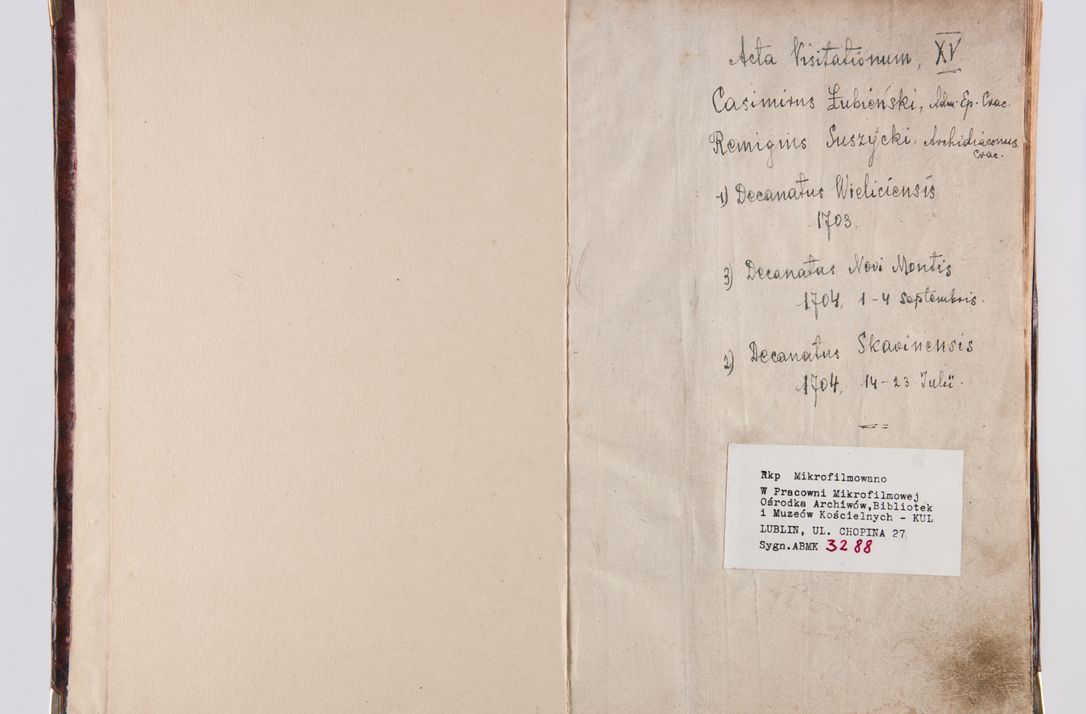 Acta Visitationum, XV
Casimirus Łubieński, Adm. Ep. Crac.
Remigius Suszycki, Archidiaconus
Crac.
1) Decanatus Wieliciensis
1703.
3) Decanatus Novi Montis
1704, 1-4 Septembris.
2) Decanatus Skavinensis
1704, 14-23 Julii.
Rkp Mikrofilmowano
W Pracowni Mikrofilmowej
Ośrodka Archiwów,Bibliotek
i Muzeów Kościelnych - KUL
LUBLIN, UL. CHOPINA 27
Sygn.ABMK 3288